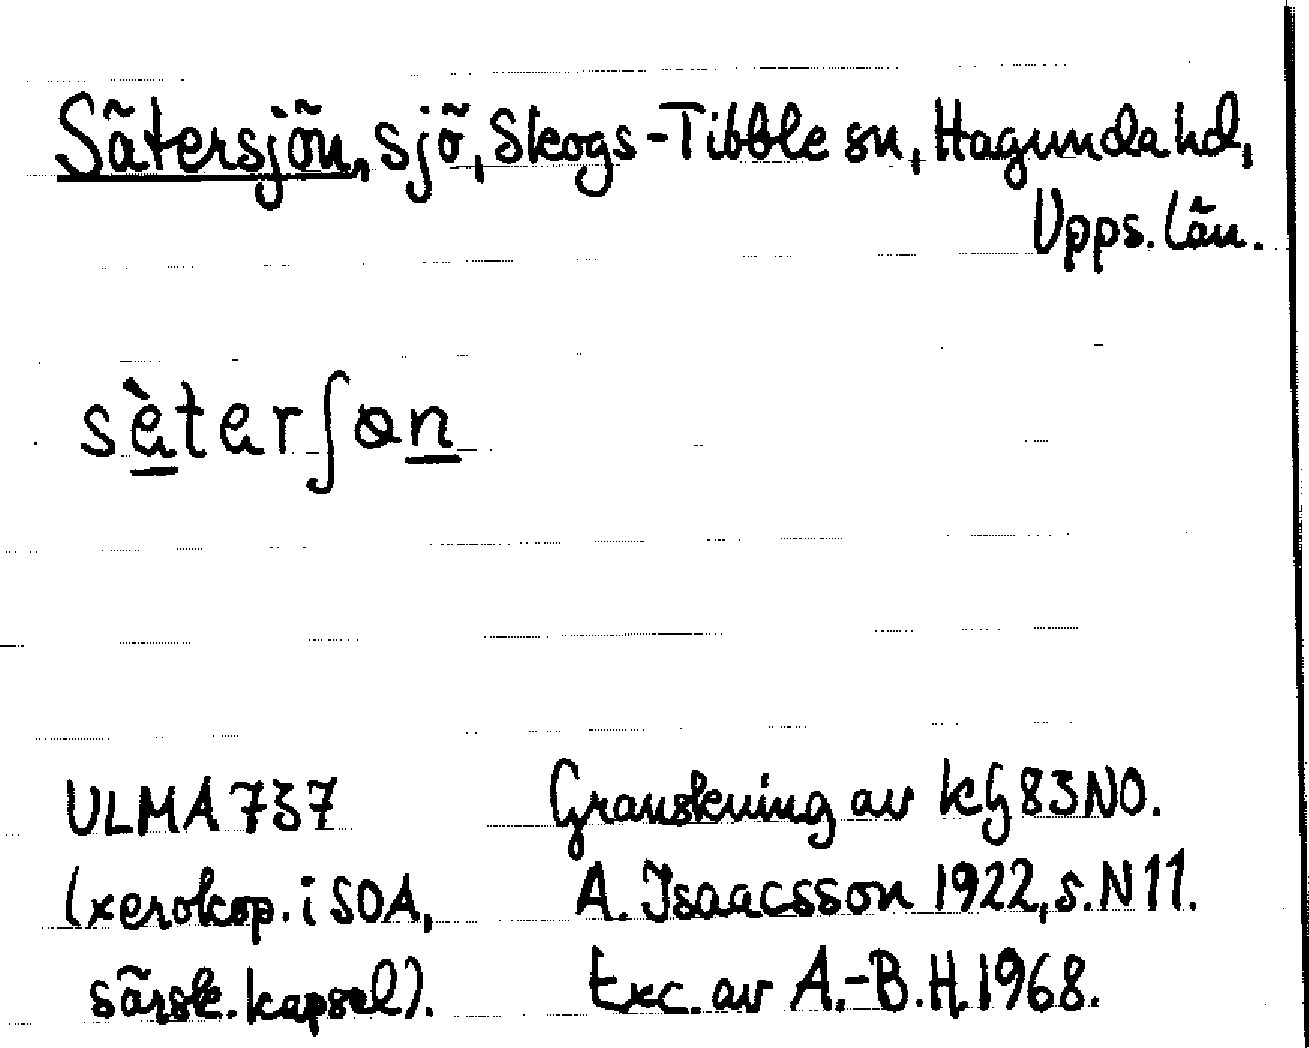 Sätersjön, sjö, Skogs-Tibble sn, Hagunda hd,
Upps. län.
sèterʃɵn
ULMA 737
(xerokop. i SOA,
särsk. kapsel).
Granskning av kG 83 NO.
A. Isaacsson 1922, s. N 11.
Exc. av A.-B. H. 1968.